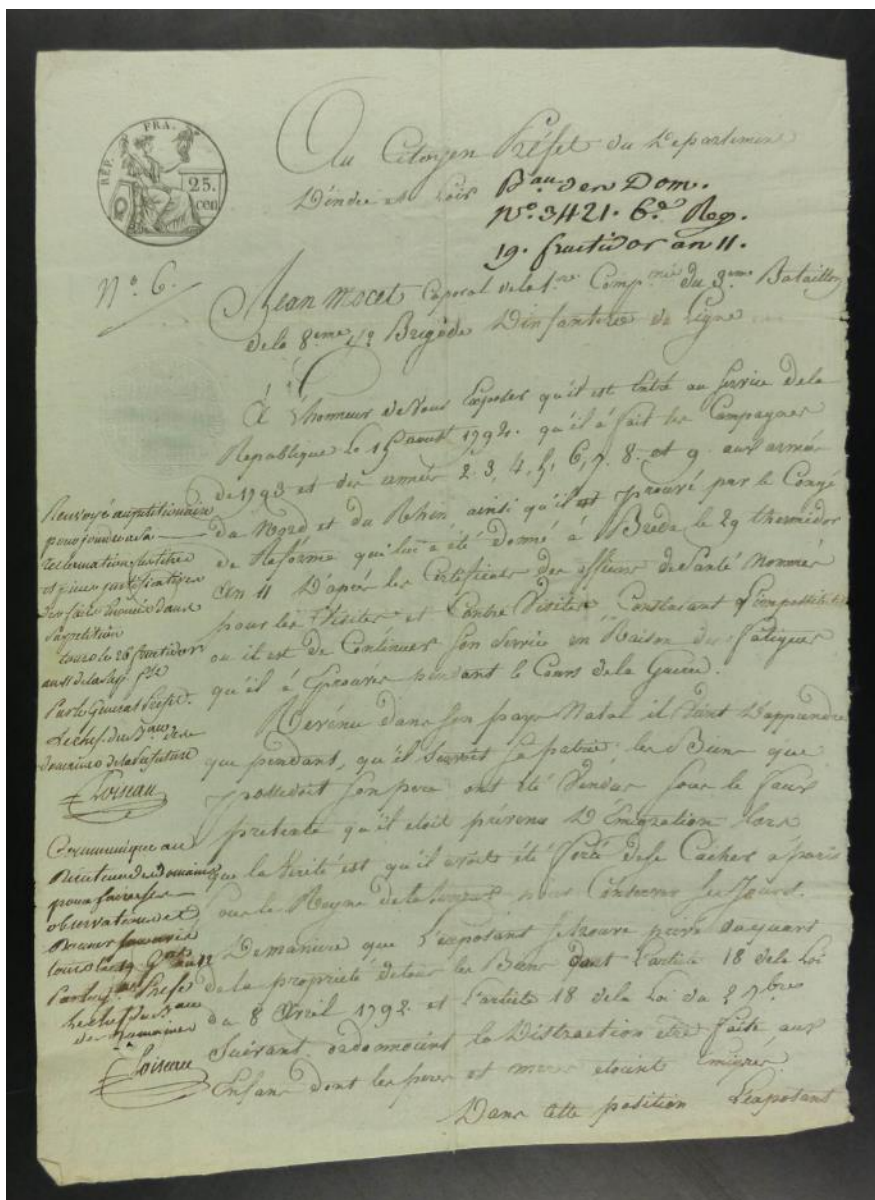 RÉP. FRA.
25.
cen
Au Citoyen Préfet du Département
D'indre et Loir
Bau. des Dom.
N.º 3421. 6.e Reg.
19. fructidor an 11.
N.º 6.
Jean Mocet Caporal de la 1.re Comp.nie du 3.eme Bataillon
de la 8.eme 1/2 Brigade D'infanterie de Ligne
A l'honneur de Vous Exposer qu'il est Entré au Service de la
Republique le 15 aout 1792. qu'il à fait les Campagnes
de 1793 et des année 2. 3, 4, 5, 6, 7. 8. et 9. aux armées
du Nord et du Rhin ainsi qu'il est prouvé par le Congé
de Réforme qui lui a été Donné à Breda le 29 thermidor
an 11 D'après les Certificats des officiers de Santé Nommés
pour les Visites et Contre Visites Constatant L'impossibilité
ou il est de Continuer Son Service en Raison des fatigues
qu'il à Eprouvé pendant le Cours de la Guerre.
Revenu dans Son pays Natal il Vient D'apprendre
que pendant, qu'il Servoit Sa patrie les Biens que
possedoit Son pere ont été Vendus Sous le faux
pretexte qu'il etoit prevenu D'Emigration lors
que la Verité est qu'il avoit été forcé de se Cacher à paris
Sous le Regne de la pour Conserver Ses Jours.
De maniere que L'exposant Se trouve privé du quart
de la propriété de tous les Biens dont L'article 18 de la Loi
du 8 Avril 1792. et L'article 18 de la Loi du 2 7.bre
Suivant. ordonnoient la Distraction être faite aux
Enfans dont les peres et meres etoient émigrés.
Dans cette position L'exposant
Renvoyé au petitionnaire
pour joindre à sa
reclamation les titres
et pieces justificatives
des faits énoncés dans
sa petition
tours le 26 fructidor
an 11 de la rep. f.se
Par le General Prefet.
Le chef du B.au des
domaines de la Prefecture
Loiseau
Communiqué au
Directeur des Domaines
pour faire ses
observations et
Donner son avis
tours le 19 an 12
Par le Prefet
Le chef du B.au
des Domaines
Loiseau